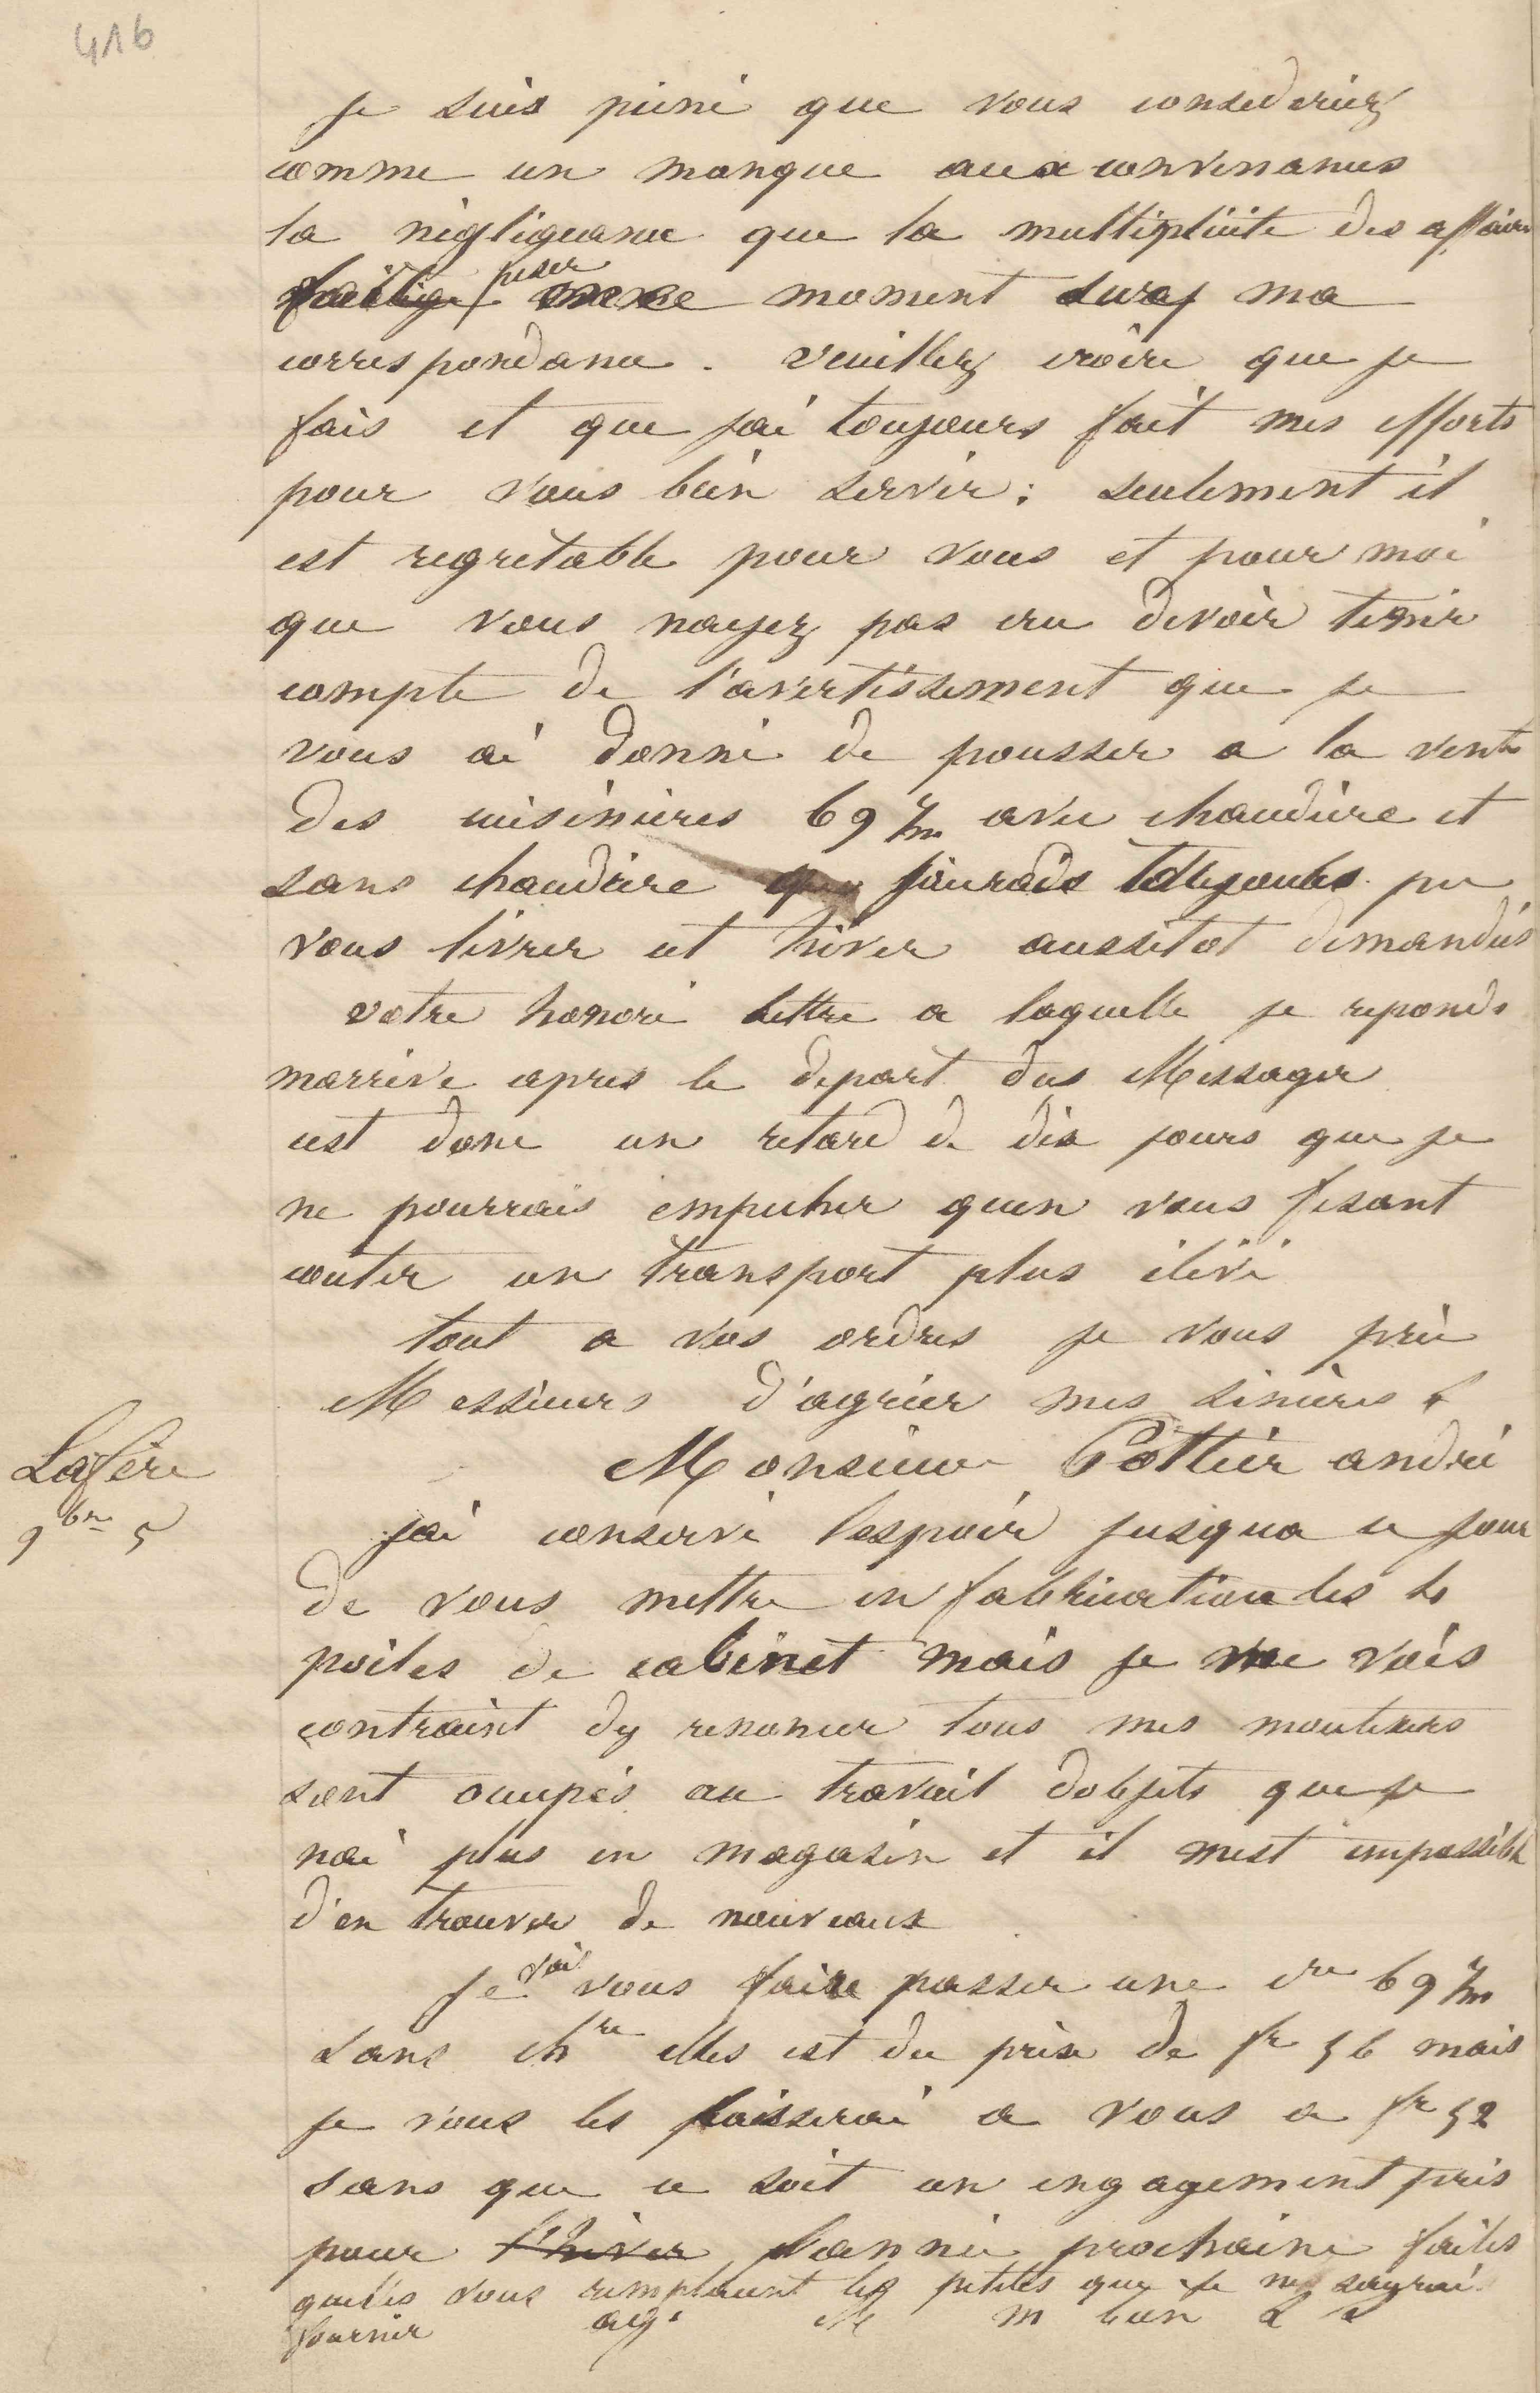 416
je suis peiné que vous considériez
comme un manque aux convenances
la négligeance que la multiplicité des affaires
peser moment sur ma
correspondance. veuillez croire que je
fais et que jai toujours fait mes efforts
pour vous bien servir; seulement il
est regretable pour vous et pour moi
que vous nayez pas cru devoir tenir
compte de l'avertissement que je
vous ai donné de pousser a la vente
des cuisinières 69 c/m avec chaudière et
sans chaudière que jaurais toujours pu
vous livrer cet hiver aussitot demandés
votre honoré lettre a laquelle je reponds
marrive apres le depart des Messager
cest donc un retard de dix jours que je
ne pourrais empecher quen vous fesant
couter un transport plus élévé
tout a vos ordres je vous prie
Messieurs d'agréer mes sincères
Lafère
9bre 5
Monsieur Pottier andré
jai conservé lespoir jusqua ce jour
de vous mettre en fabrication les
poiles de cabinet mais je me vois
contraint dy renoncer tous mes mouleurs
sont occupés au travail dobjets que je
nai plus en magasin et il mest impossible
d'en trouver de nouveaux
Je vais vous faire passer une cre 69 c/m
sans chre elles est du prix de fr 56 mais
je vous les laisserai a vous a fr 52
sans que ce soit un engagement pris
pour l'hiver lannée prochaine faites
quelles vous remplacent les petites que je ne saurai
fournir agr M m bien